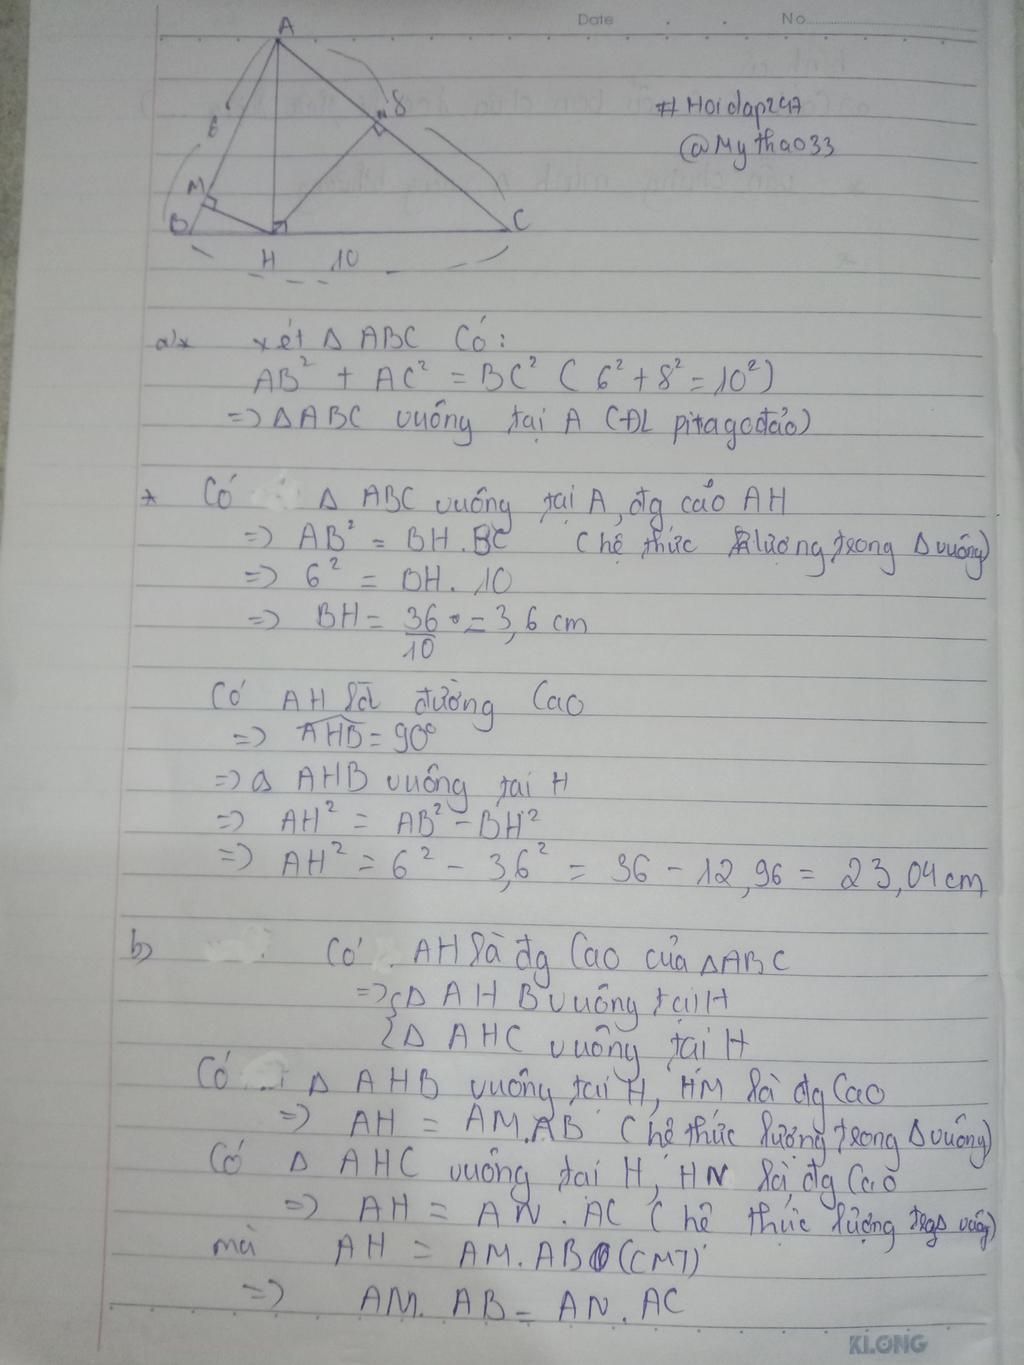 Date No
A
8
#Hoidap247
N
@Mythao33
6
M
B C
H 10
a)* xét Δ ABC Có:
AB² + AC² = BC² ( 6² + 8² = 10²)
=> ΔABC vuông tại A (ĐL pitago đảo)
* Có Δ ABC vuông tại A, đg cảo AH
=> AB² = BH. BC ( hệ thức lượng trong Δ vuông)
=> 6² = BH. 10
=> BH = 36/10 = 3,6 cm
Có AH là đường Cao
=> AHB = 90°
=> Δ AHB vuông tại H
=> AH² = AB² - BH²
=> AH² = 6² - 3,6² = 36 - 12,96 = 23,04 cm
b) Có AH là đg Cao của ΔABC
=> { Δ AHB vuông tại H
{ Δ AHC vuông tại H
Có Δ AHB vuông tại H, HM là đg Cao
=> AH = AM.AB ( hệ thức lượng trong Δ vuông)
Có Δ AHC vuông tại H, HN là đg Cao
=> AH = AN. AC ( hệ thức lượng vuông)
mà AH = AM. AB (CMT)
=> AM. AB = AN. AC
KLONG